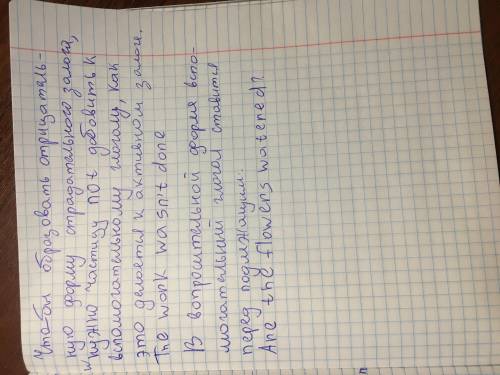 Что-бы образовать отрицатель-
ную форму страдательного залога,
нужно частицу not добавить к
вспомогательному глаголу, как
это делается к активном залоге.
The work wasn't done
В вопросительной форме вспо-
могательный глагол ставится
перед подлежащим.
Are the flowers watened?